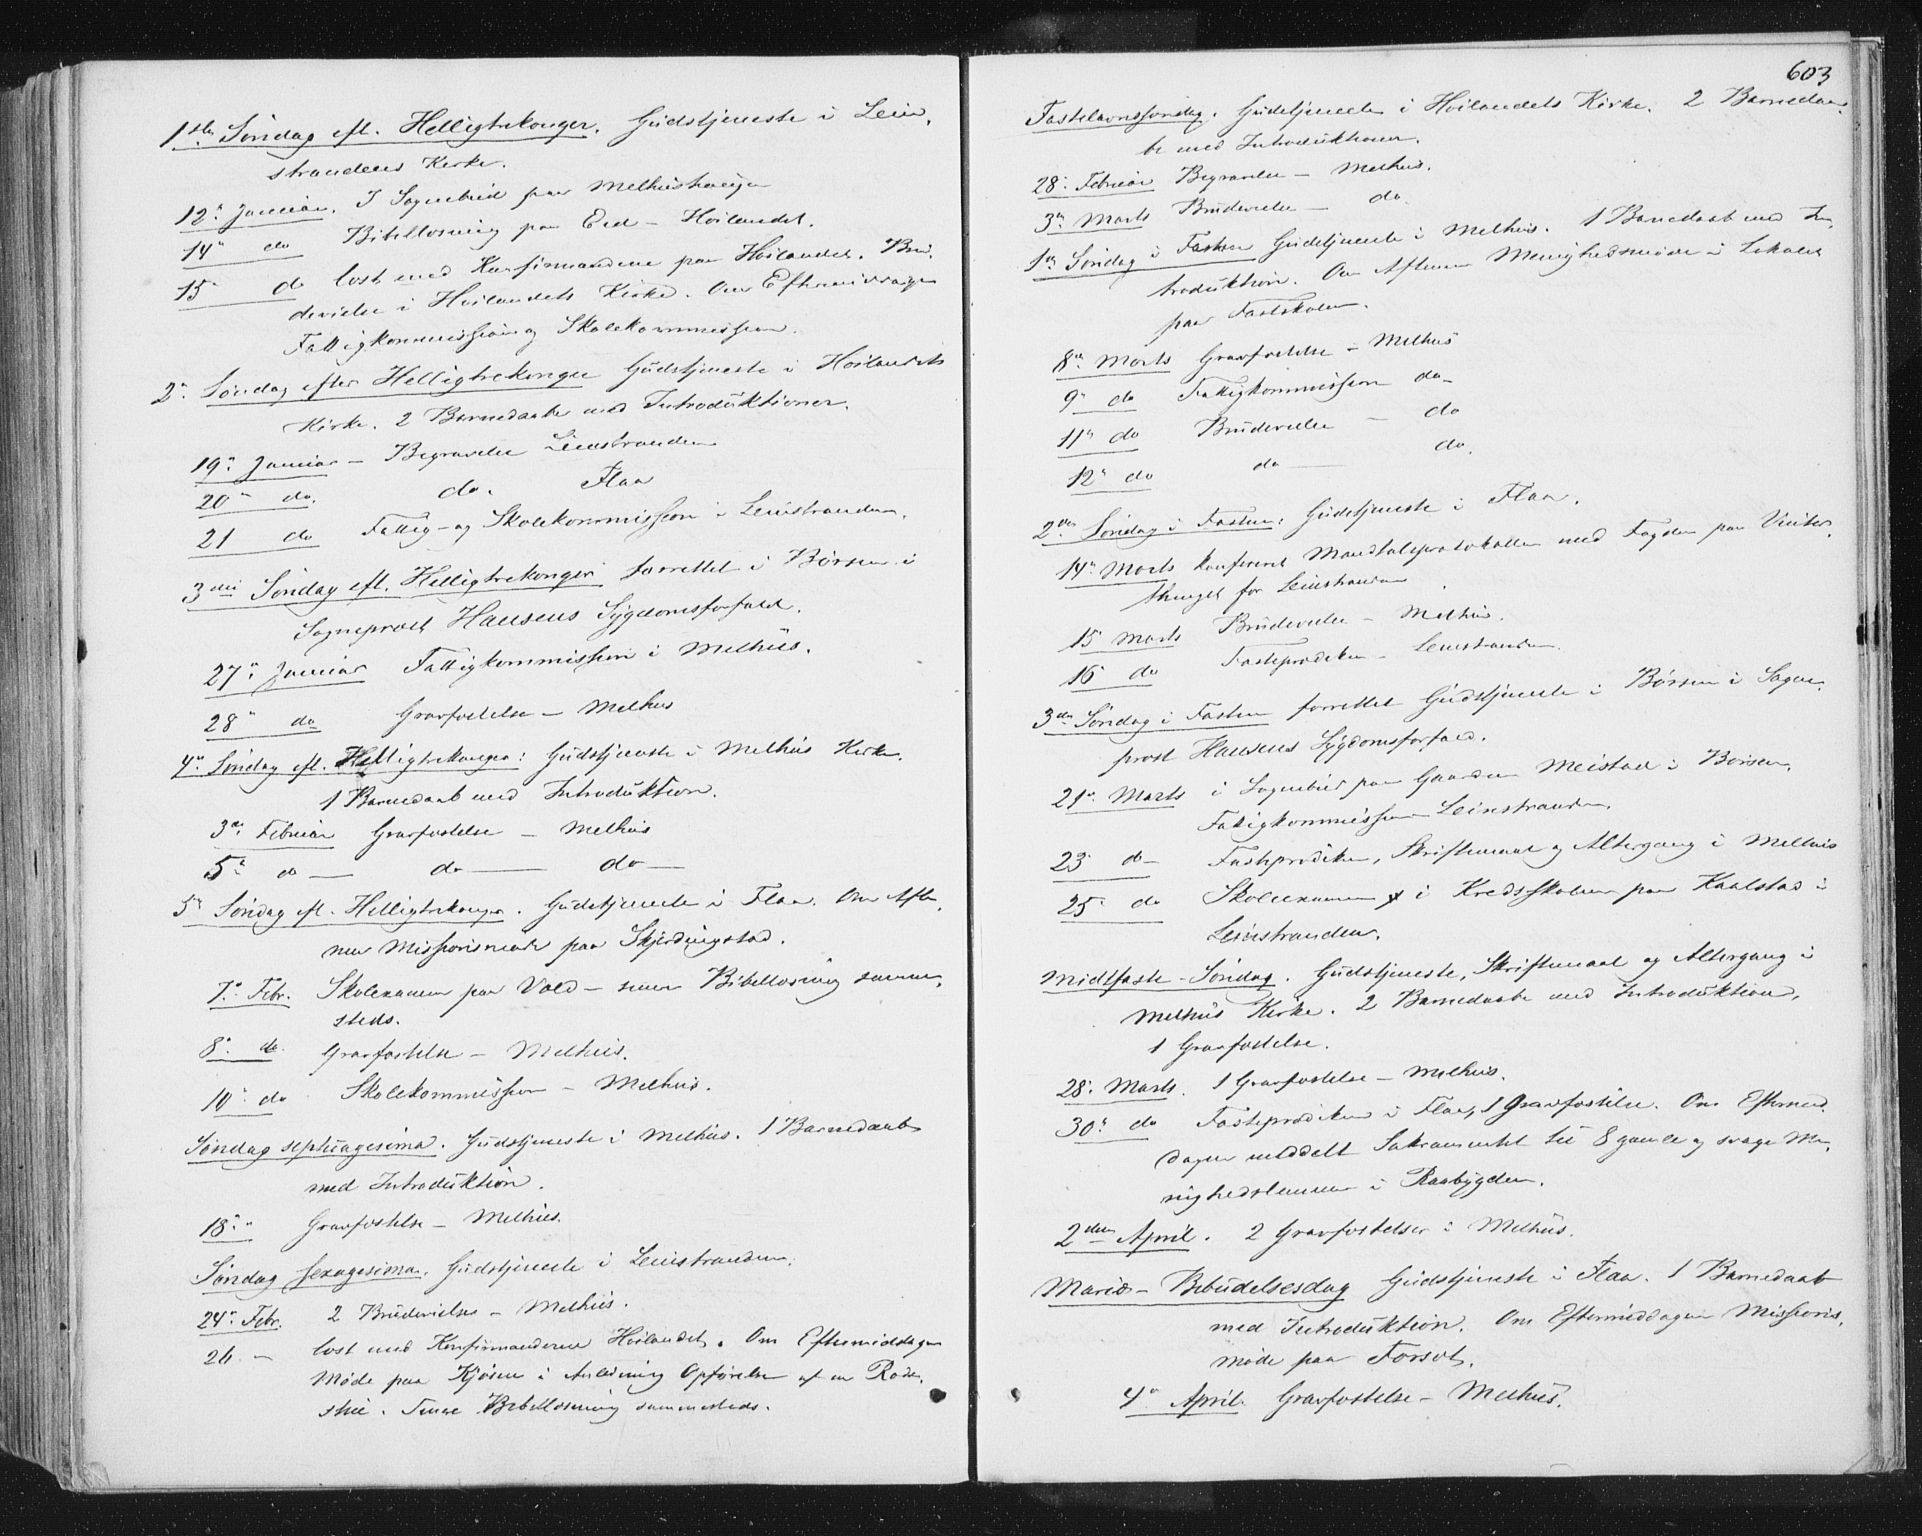 1ste Søndag eft. Helligtrekonger. Gudstjeneste i Lein,
strandens Kirke.
12te Januar. I Sognebud paa Melhushaugen
14de do Bibellæsning paa Eid – Høilandet.
15 do læst med Konfirmanderne paa Høilandet. Bru,
devielse i Høilandets Kirke. Om Eftermiddagen
Fattigkommission og Skolekommission.
2den Søndag efter Helligtrekonger Gudstjeneste i Høilandets
Kirke. 2 Barnedaabe med Introduktioner.
19de Januar – Begravelse Leinstranden
20de do. do. Flaa
21 do Fattig- og Skolekommission i Leinstranden.
3die Søndag eft. Helligtrekonger forrettet i Børsen i
Sogneprest Hansens Sygdomsforfald.
27de Januar Fattigkommission i Melhus.
28de do Gravfæstelse – Melhus
4de Søndag eft. Helligtrekonger: Gudstjeneste i Melhus Kirke.
1 Barnedaab med Introduktion.
3de Februar Gravfæstelse – Melhus
5te do — do — do —
5te Søndag eft. Helligtrekonger. Gudstjeneste i Flaa. Om Afte,
nen Missionsmøde paa Skjerdingstad.
7de Febr. Skolexamen paa Vold – senere Bibellæsning samme,
steds.
8de do. Gravfæstelse – Melhus.
10de do Skolekommission – Melhus.
Søndag septuagesima. Gudstjeneste i Melhus. 1 Barnedaab
med Introduktion.
18de " Gravfæstelse – Melhus.
Søndag sexagesima. Gudstjeneste i Leinstranden.
24de Febr. 2 Brudevielser – Melhus.
26 – læst med Konfirmanderne Høilandet. Om Eftermiddagen
Møde paa Kjøren i Anledning Opførelse af en Rode,
stue. Senere Bibellæsning sammesteds.
603
Fastelavnssøndag. Gudstjeneste i Høilandets Kirke. 2 Barnedaa,
be med Introduktioner.
28de Februar Begravelse – Melhus.
3die Marts Brudevielse – do.
1ste Søndag i Fasten Gudstjeneste i Melhus. 1 Barnedaab med In,
troduktion. Om Aftenen Menighedsmøde i Lokalet
paa Fastskolen.
8de Marts Gravfæstelse – Melhus
9de do Fattigkommission do –
11te do Brudevielse – do
12te do do — do.
2den Søndag i Fasten: Gudstjeneste i Flaa.
14de Marts konfereret Mandtalsprotokollen med Fogden paa Vinter,
thinget for Leinstranden.
15 Marts Brudevielse – Melhus.
16 do Fasteprædiken – Leinstranden.
3die Søndag i Fasten forrettet Gudstjeneste i Børsen i Sogne,
prest Hansens Sygdomsforfald.
21de Marts i Sognebud paa Gaarden Meistad i Børsen.
Fattigkommission Leinstranden.
23de do – Fasteprædiken, Skriftemaal og Altergang i Melhus
25de do Skolexamen i Kredsskolen paa Kaalstad i
Leinstranden.
Midtfaste-Søndag. Gudstjeneste, Skriftemaal og Altergang i
Melhus Kirke. 2 Barnedaabe med Introduktion,
1 Gravfæstelse.
28de Marts. 1 Gravfæstelse – Melhus.
30te do Fasteprædiken i Flaa, 1 Gravfæstelse. Om Eftermid,
dagen meddelt Sakramentet til 8 gamle og svage Me,
nighedslemmer i Raabygden.
2den April. 2 Gravfæstelser i Melhus.
Mariæ-Bebudelsesdag Gudstjeneste i Flaa. 1 Barnedaab
med Introduktion. Om Eftermiddagen Missions,
møde paa Forset.
4de April. Gravfæstelse – Melhus.